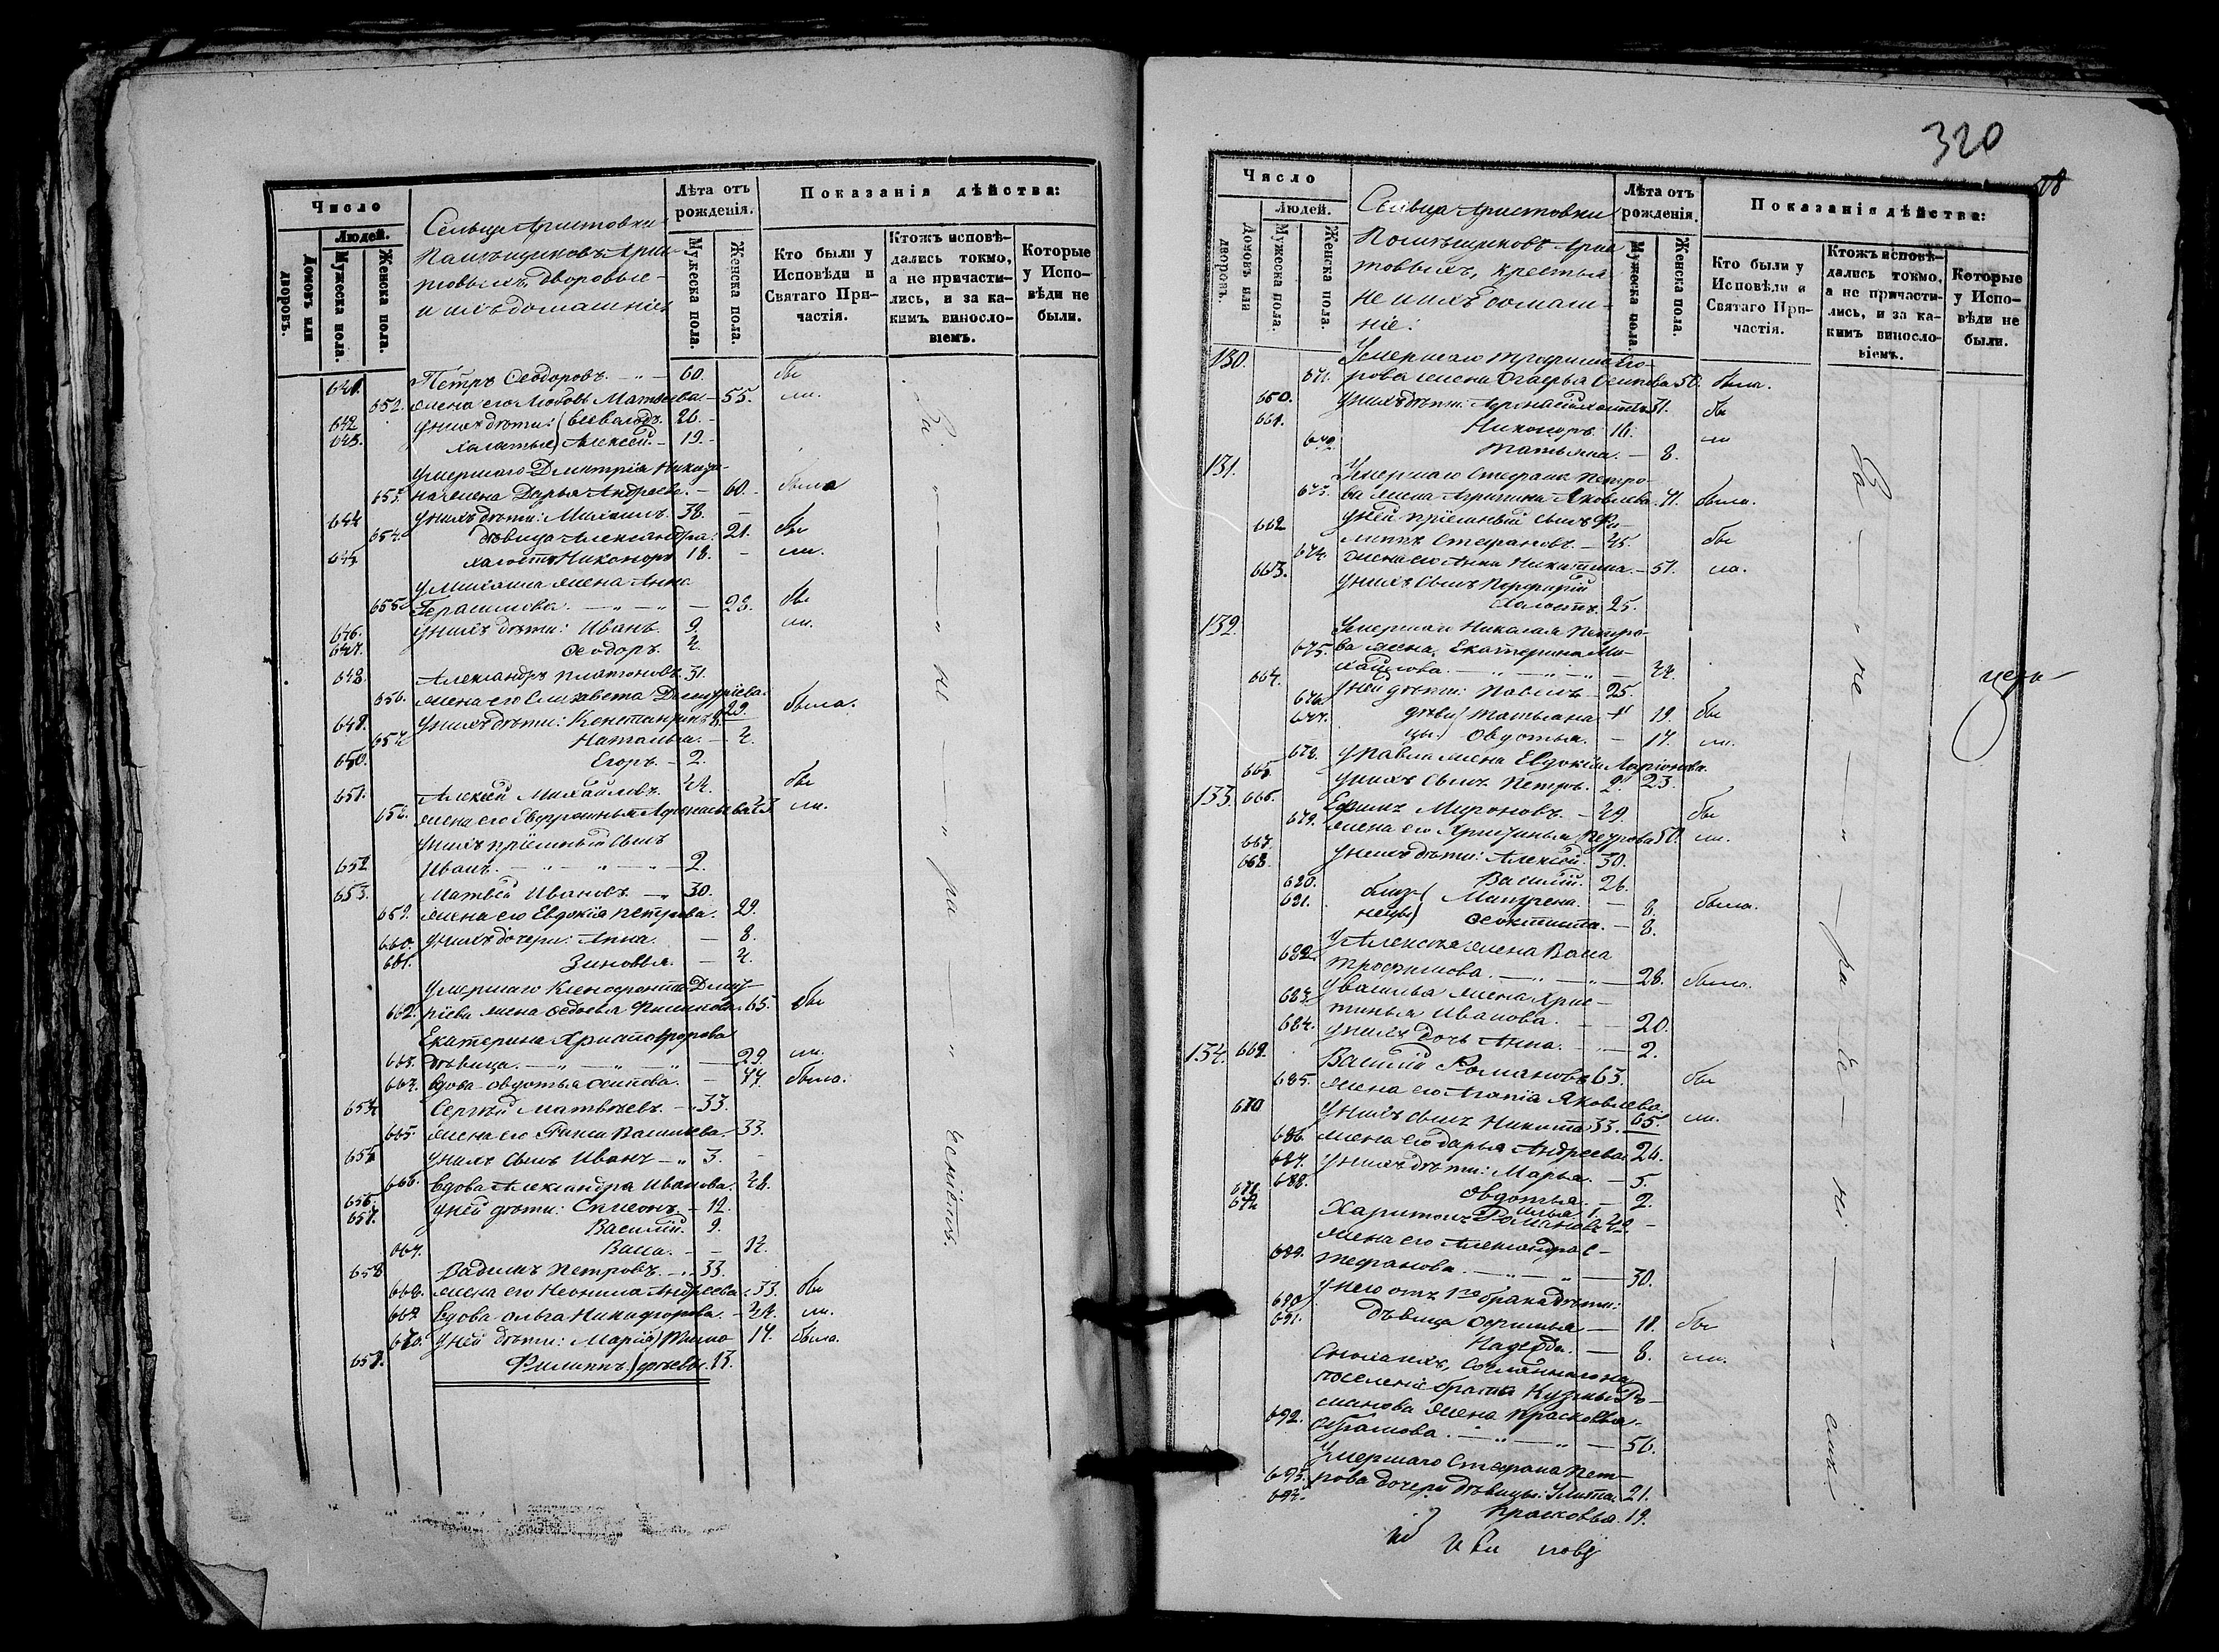 Число
Людей.
Домовъ или дворовъ.
Мужеска пола.
Женска пола.
Сельца Аристовки
Помѣщиковъ Арис-
товыхъ, дворовые
и ихъ домашніе
Лѣта отъ рожденія.
Мужеска пола.
Женска пола.
Показанія дѣйства:
Кто были у Исповѣди и Святаго Причастія.
Ктожъ исповѣдались токмо, а не причастились, и за какимъ винословіемъ.
Которые у Исповѣди не были.
641. Петръ Ѳеодоровъ. 60. бы
652. жена его Любовь Матвеева 55. ли.
642 у нихъ дѣти: 26.
643. холостые Алексей. 19.
умершаго Дмитрія
653. жена Дарья Андреева. 60. была
644 у нихъ дѣти: Михаилъ. 38.
654. дѣвица Александра. 21. бы
645 холостъ Никаноръ 18. ли.
у Михаила жена Анна
655 Герасимова. 28. бы
646. у нихъ дѣти: Иванъ. 9. ли.
647. Ѳеодоръ. 4.
648. Александръ Платоновъ. 31.
656. жена его Елизавета Дмитріева. 29. была.
649. у нихъ дѣти: Константинъ 8.
657 Наталья. 4.
650. Егоръ. 2.
651. Алексей Михайловъ. 44. бы
658. жена его Евфросинья Афанасьева 43 ли.
у нихъ пріемный сынъ
652 Иванъ. 2.
653. Матвей Ивановъ 30.
659. жена его Евдокія Петрова. 29.
660. у нихъ дочери: Анна. 8.
661. Зиновья. 4.
умершаго Ксенофонта Дмит-
662. ріева жена Ѳедосья Филипова. 65. бы
Екатерина Христофорова
663. дѣвица. 29. ли.
664. вдова Овдотья Осипова. 47. была.
654 Сергѣй Матвѣевъ. 33.
665. жена его Раиса Васильева. 33.
655 у нихъ сынъ Иванъ 3.
666. вдова Александра Иванова. 48.
656. у ней дѣти: 12.
657. Василій. 9.
667. Васса. 14.
658 Вадимъ Петровъ. 33.
668. жена его Неонила Андреева. 33. бы
669 вдова Ольга Никифорова. 44. ли.
670. у ней дѣти: Марія Тимо- 17. была.
659. Филиппъ фѣевы. 13.
За не ра ченіемъ.
320
Число
Людей.
Домовъ или дворовъ.
Мужеска пола.
Женска пола.
Сельца Аристовки
Помѣщиковъ Арис-
товыхъ, крестья-
не и ихъ домаш-
ніе:
Лѣта отъ рожденія.
Мужеска пола.
Женска пола.
Показанія дѣйства:
Кто были у Исповѣди и Святаго Причастія.
Ктожъ исповѣдались токмо, а не причастились, и за какимъ винословіемъ.
Которые у Исповѣди не были.
130. Умершаго Трофима Его-
671. рова жена Осипова 50. была.
660. у нихъ дѣти: 31. бы
661. Никаноръ. 16. ли
672. Татьяна. 8.
131. Умершаго Стефана Петро-
673. ва жена Агрипина Яковлева. 71. была.
662 у ней пріемный сынъ Фи-
липъ Стефановъ. 45. бы
674. жена его Анна Никитина. 51. ли.
663. у нихъ сынъ Порфирій
холостъ. 25.
132. Умершаго Николая Петро-
675. ва жена Екатерина Ми-
хайлова. 44.
664. у ней дѣти: Павелъ 25.
676 дѣви Татьяна. 19. бы
677. цы Овдотья. 17. ли.
678. у Павла жена Евдокія Ларіонова. 23.
665. у нихъ сынъ Петръ. 2.
133. 666. Ефимъ Мироновъ. 49. бы
679. жена его Христинья Петрова 50. ли.
667. у нихъ дѣти: Алексей. 30.
668. Василій. 26.
680. близ- Матрена. 8. была.
681. нецы Ѳеоктиста. 8.
у Алексѣя жена Васса
682. Трофимова. 28. была.
683. у Василья жена Хрис-
тинья Иванова. 20.
684. у нихъ дочь Анна. 2.
134. 669. Василій Романовъ 63. бы
685. жена его Агапія Яковлева. 65. ли.
670 у нихъ сынъ Никита 33.
686. жена его Дарья Андреева 24.
687. у нихъ дѣти: Марья. 5.
688. Овдотья. 2.
671 Илья 1.
672 Харитонъ Романовъ 42
жена его Александра С-
689. тефанова. 30.
у него отъ 1го брака дѣти:
690. дѣвица 18. бы
691. Надежда. 8. ли.
поселеніе брата Кузьмы Ро-
манова жена Прасковья
692. 56.
Умершаго Стефана Пет-
693. рова дочери дѣвицы: Улита. 21.
694. Прасковья. 19.
За не ра че ні емъ